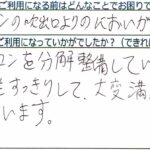 ご利用になる前はどんなことでお困りで
ンの吹出口よりのにおいが
ご利用になっていかがでしたか？（できれ
コンを分解整備してい
すっきりして、大変満
います。